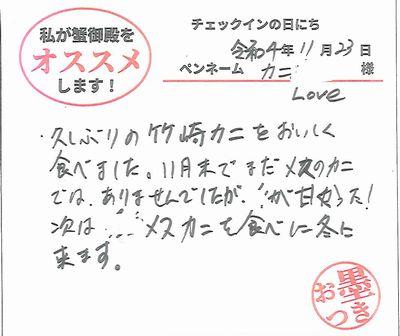 私が蟹御殿を
オススメ
します！
チェックインの日にち
令和4年11月23日
ペンネーム カニ 様
Love
・久しぶりの竹崎カニをおいしく
食べました。11月末でまだメスのカニ
では、ありませんでしたが、が甘かった！
次は メスカニを食べに冬に
来ます。
お墨つき